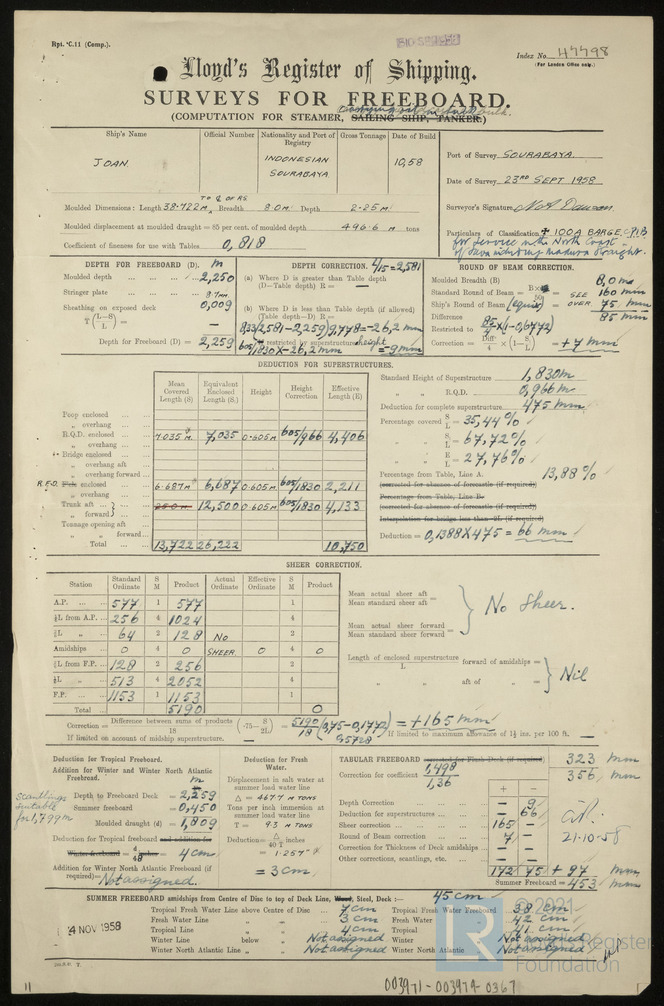 Rpt. C.11 (Comp.).
Index No. 47798
(For London Office only.)
Lloyd's Register of Shipping.
SURVEYS FOR FREEBOARD.
(COMPUTATION FOR STEAMER, SAILING SHIP, TANKER.)
Ship's Name
Official Number
Nationality and Port of Registry
Gross Tonnage
Date of Build
JOAN
INDONESIAN
SOURABAYA
10,58
Port of Survey SOURABAYA
Date of Survey 23RD SEPT 1958
Surveyor's Signature
Particulars of Classification + 100A BARGE,
for Service in the North Coast
of Java including Madura Straight.
TO ₵ OF RS.
Moulded Dimensions: Length 38.722 M Breadth 8.0 M Depth 2.25 M
Moulded displacement at moulded draught = 85 per cent. of moulded depth 496.6 M tons
Coefficient of fineness for use with Tables 0,818
DEPTH FOR FREEBOARD (D). m
Moulded depth 2,250
Stringer plate 9 mm
Sheathing on exposed deck 0,009
T (L-S/L) = —
Depth for Freeboard (D) = 2,259
DEPTH CORRECTION. L/15 = 2,581
(a) Where D is greater than Table depth
(D-Table depth) R =
(b) Where D is less than Table depth (if allowed)
(Table depth-D) R =
8,33(2,581-2,259)9,778 = -26,2 mm
If restricted by superstructure height
605/1830 x -26,2 mm = -9 mm
ROUND OF BEAM CORRECTION.
Moulded Breadth (B) 8,0 ms
Standard Round of Beam = Bx12/50 = SEE 160 mm
Ship's Round of Beam (equiv) = OVER 75 mm
Difference 85 mm
Restricted to 85/4 x (1-0,6772)
Correction = Diff/4 x (1-S/L) = +7 mm
DEDUCTION FOR SUPERSTRUCTURES.
Mean Covered Length (S)
Equivalent Enclosed Length (S₁)
Height
Height Correction
Effective Length (E)
Poop enclosed
„ overhang
R.Q.D. enclosed 7.035 M 7,035 0.605 M 605/966 4,406
„ overhang
Bridge enclosed
„ overhang aft
„ overhang forward
R.F.D. Fcle enclosed 6.687 M 6,687 0.605 M 605/1830 2,211
„ overhang
Trunk aft 12,500 0.605 M 605/1830 4,133
„ forward
Tonnage opening aft
„ „ forward
Total 13,722 26,222 10,750
Standard Height of Superstructure 1,830 m
„ „ R.Q.D. 0,966 m
Deduction for complete superstructure 475 mm
Percentage covered S/L = 35,44 %
„ S₁/L = 67,72 %
„ E/L = 27,76 %
Percentage from Table, Line A. 13,88 %
(corrected for absence of forecastle (if required))
Percentage from Table, Line B.
(corrected for absence of forecastle (if required))
Interpolation for bridge less than .2L (if required)
Deduction = 0,1388 x 475 = 66 mm
SHEER CORRECTION.
Station
Standard Ordinate
S M
Product
Actual Ordinate
Effective Ordinate
S M
Product
A.P. 577 1 577 1
⅙L from A.P. 256 4 1024 4
⅓L „ 64 2 128 No 2
Amidships 0 4 0 SHEER 0 4 0
⅓L from F.P. 128 2 256 2
⅙L „ 513 4 2052 4
F.P. 1153 1 1153 1
Total 5190 0
Mean actual sheer aft
Mean standard sheer aft =
Mean actual sheer forward
Mean standard sheer forward =
No Sheer.
Length of enclosed superstructure forward of amidships =
L
„ „ aft of „ =
Nil
Correction = Difference between sums of products/18 (.75 - S/2L) = 5190/18 (0,75-0,1772) = +165 mm
0,5728
If limited on account of midship superstructure. — If limited to maximum allowance of 1½ ins. per 100 ft. —
Deduction for Tropical Freeboard.
Addition for Winter and Winter North Atlantic Freeboard. m
Depth to Freeboard Deck = 2,259
Summer freeboard = 0,450
Moulded draught (d) = 1,809
Scantlings suitable for 1,799 m
Deduction for Tropical freeboard and addition for
Winter freeboard = d/48 = 4 cm
Addition for Winter North Atlantic Freeboard (if required) = Not assigned.
Deduction for Fresh Water.
Displacement in salt water at summer load water line
Δ = 467.7 M TONS
Tons per inch immersion at summer load water line
T = 9.3 M TONS
Deduction = Δ/40 T inches
= 1.257"
= 3 cm
TABULAR FREEBOARD corrected for Flush Deck (if required) 323 mm
Correction for coefficient 1,498/1,36 356 mm
+ −
Depth Correction — 9
Deduction for superstructures — 66
Sheer correction 165 —
Round of Beam correction 7 —
Correction for Thickness of Deck amidships — —
Other corrections, scantlings, etc. — —
172 75 + 97 mm
Summer Freeboard = 453 mm
21-10-58
SUMMER FREEBOARD amidships from Centre of Disc to top of Deck Line, Wood, Steel, Deck :— 45 cm
Tropical Fresh Water Line above Centre of Disc 7 cm Tropical Fresh Water Freeboard 38 cm
Fresh Water Line „ „ 3 cm Fresh Water „ 42 cm
Tropical Line „ „ 4 cm Tropical „ 41 cm
Winter Line below „ Not assigned Winter „ Not assigned
Winter North Atlantic Line „ „ Not assigned Winter North Atlantic „ Not assigned
4 NOV 1958
© 2021
LR
Lloyd's Register
Foundation
003971-003979-0367